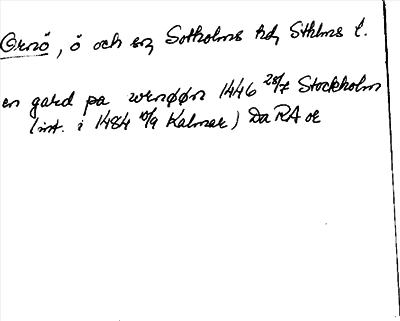 Ornö, ö och sn Sotholms hd, Sthlms l.
en gard pa wrnøøn 1446 28/7 Stockholm
(int. i 1484 10/9 Kalmar) Da RA or